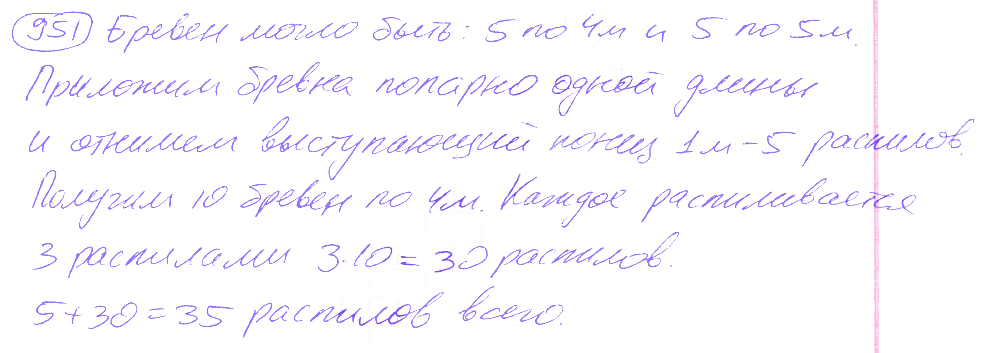 951 Бревен могло быть: 5 по 4м и 5 по 5м.
Приложим бревна попарно одной длины
и отнимем выступающий конец 1м – 5 распилов.
Получим 10 бревен по 4м. Каждое распиливается
3 распилами 3·10 = 30 распилов.
5+30=35 распилов всего.